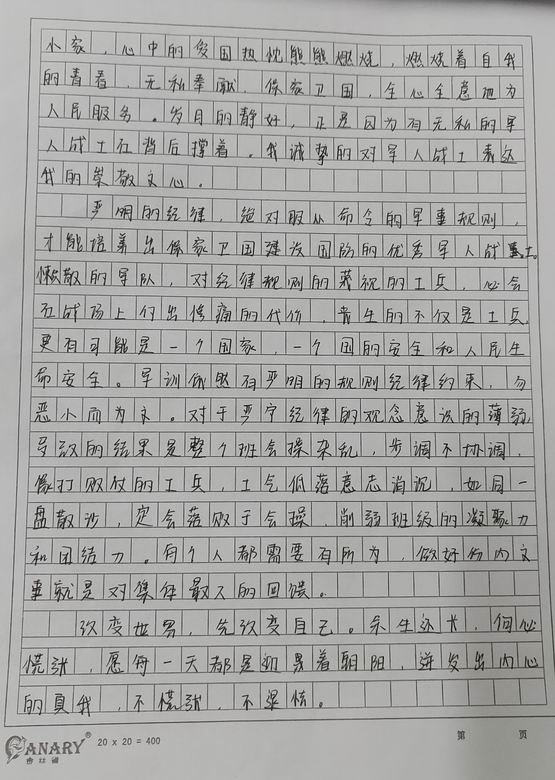 小家，心中的爱国热忱熊熊燃烧，燃烧着自我
的青春，无私奉献，保家卫国，全心全意地为
人民服务。岁月的静好，正是因为有无私的军
人战士在背后撑着。我诚挚的对军人战士表达
我的崇敬之心。
严明的纪律，绝对服从命令的军事规则，
才能培养出保家卫国建设国防的优秀军人战士。
懒散的军队，对纪律规则的蔑视的士兵，必会
在战场上付出惨痛的代价，丧生的不仅是士兵，
更有可能是一个国家，一个国的安全和人民生
命安全。军训依然有严明的规则纪律约束，勿
恶小而为之。对于严守纪律的观念意识的薄弱，
导致的结果是整个班会操杂乱，步调不协调，
像打败仗的士兵，士气低落意志消沉，如同一
盘散沙，定会落败于会操，削弱班级的凝聚力
和团结力。每个人都需要有所为，做好份内之
事就是对集体最大的回馈。
改变世界，先改变自己。余生还长，何必
慌张，愿每一天都是迎着朝阳，迸发出内心
的真我，不慌张，不退怯。
CANARY®
20 x 20 = 400
第 页